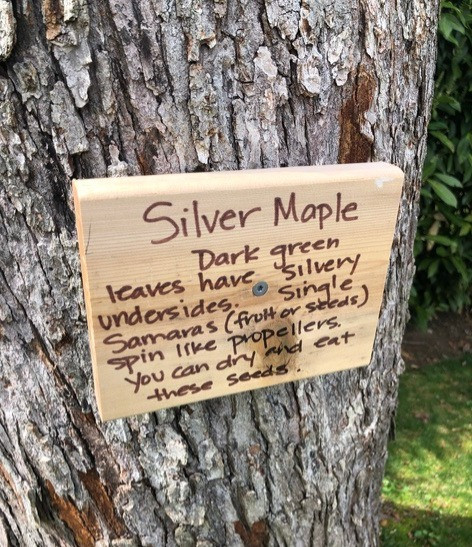 Silver Maple
Dark green
leaves have silvery
undersides. Single
Samaras (fruit or seeds)
spin like propellers.
You can dry and eat
these seeds.